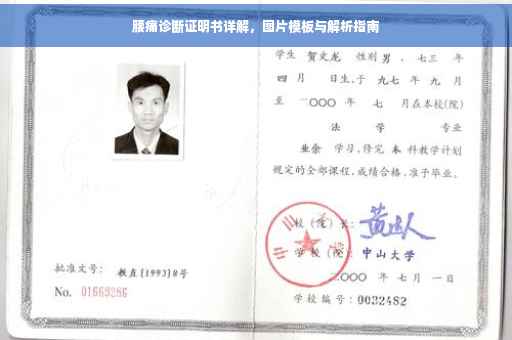 腰痛诊断证明书详解，图片模板与解析指南
学生 贺文龙 性别 男，七三 年
四 月 日生，于 九七 年 九 月
至 二〇〇〇 年 七 月在本校(院)
法 学 专业
业余 学习，修完 本 科教学计划
规定的全部课程，成绩合格，准予毕业。
校(院)长：
学校(院) 中山大学
二〇〇〇 年 七 月 一 日
学校编号：0032482
批准文号： 教直(1993)8号
No. 01669286